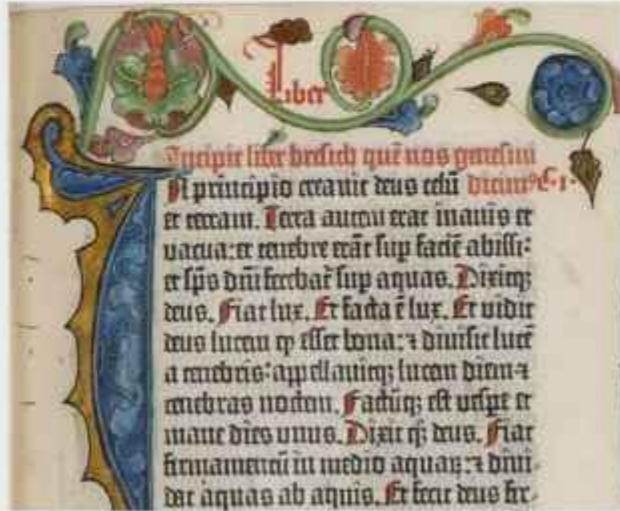 Liber
Incipit liber bresich quē nos genesim
In principio creavit deus celū dicim⁹ C·1·
et terram. Terra autem erat inanis et
vacua: et tenebre erāt sup faciē abissi:
et sp̄s dn̄i ferebat̄ sup aquas. Dixitqꝫ
deus. Fiat lux. Et facta ē lux. Et vidit
deus lucem ꝙ esset bona: ⁊ divisit lucē
a tenebris: appellavitqꝫ lucem diem ⁊
tenebras noctem. Factūqꝫ est vesꝑe et
mane dies unus. Dixit qꝫ deus. Fiat
firmamentū in medio aquaꝝ: ⁊ divi-
dat aquas ab aquis. Et fecit deus fir-